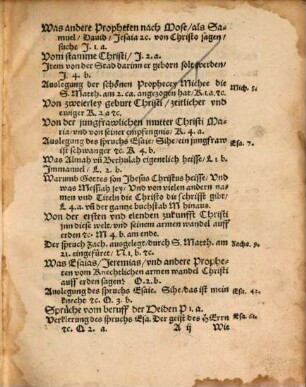 Was andere Propheten nach Mose/als Sa-
muel/Dauid/Jesaia ꝛc. von Christo sagen/
suche J. 1. a.
Vom stamme Christi/ J. 2. a.
Item von der Stad darinn er geborn solt werden/
J. 4. b.
Auslegung der schönen Prophecey Michee die
S. Matth. am 2. ca. angezogen hat/K. 1. a. ꝛc.
Mich. 5.
Von zweierley geburt Christi/ zeitlicher vnd
ewiger K. 2. a ꝛc.
Von der jungfrawlichen mutter Christi Ma-
ria/vnd von seiner empfengnis/ K. 4. a.
Auslegung des spruchs Esaie/ Sihe/ein jungfraw
ist schwanger ꝛc K. 4. b.
Esa. 7.
Was Almah vñ Bethulah eigentlich heisse/ L 1. b.
Immanuel/ L 2. b.
Warumb Gottes son Jhesus Christus heisse/ Vnd
was Messiah sey/ Vnd von vielen andern na-
men vnd Titeln die Christo die schrifft gibt/
L 4. a. Est der gantze buchstab M hinaus.
Von der ersten vnd elenden zukunfft Christi
inn diese welt/vnd seinem armen wandel auff
erden ꝛc M 4. b. am ende.
Der spruch Zach. ausgelegt/durch S. Matth. am
21. eingefüret/ N 1. b. ꝛc.
Zacha. 9.
Was Esaias/Jeremias/vnd andere Prophe-
ten vom Knechtlichen armen wandel Christi
auff erden sagen? O. 2. b.
Auslegung des spruchs Esaie. Sihe/das ist mein
knecht ꝛc O. 3. b.
Esa. 42.
Sprüche vom beruff der Heiden P 1. a.
Verklerung des spruchs Esa. Der geist des HErrn
Esa. 61.
ꝛc. Q 2. a.
A ij
Wie